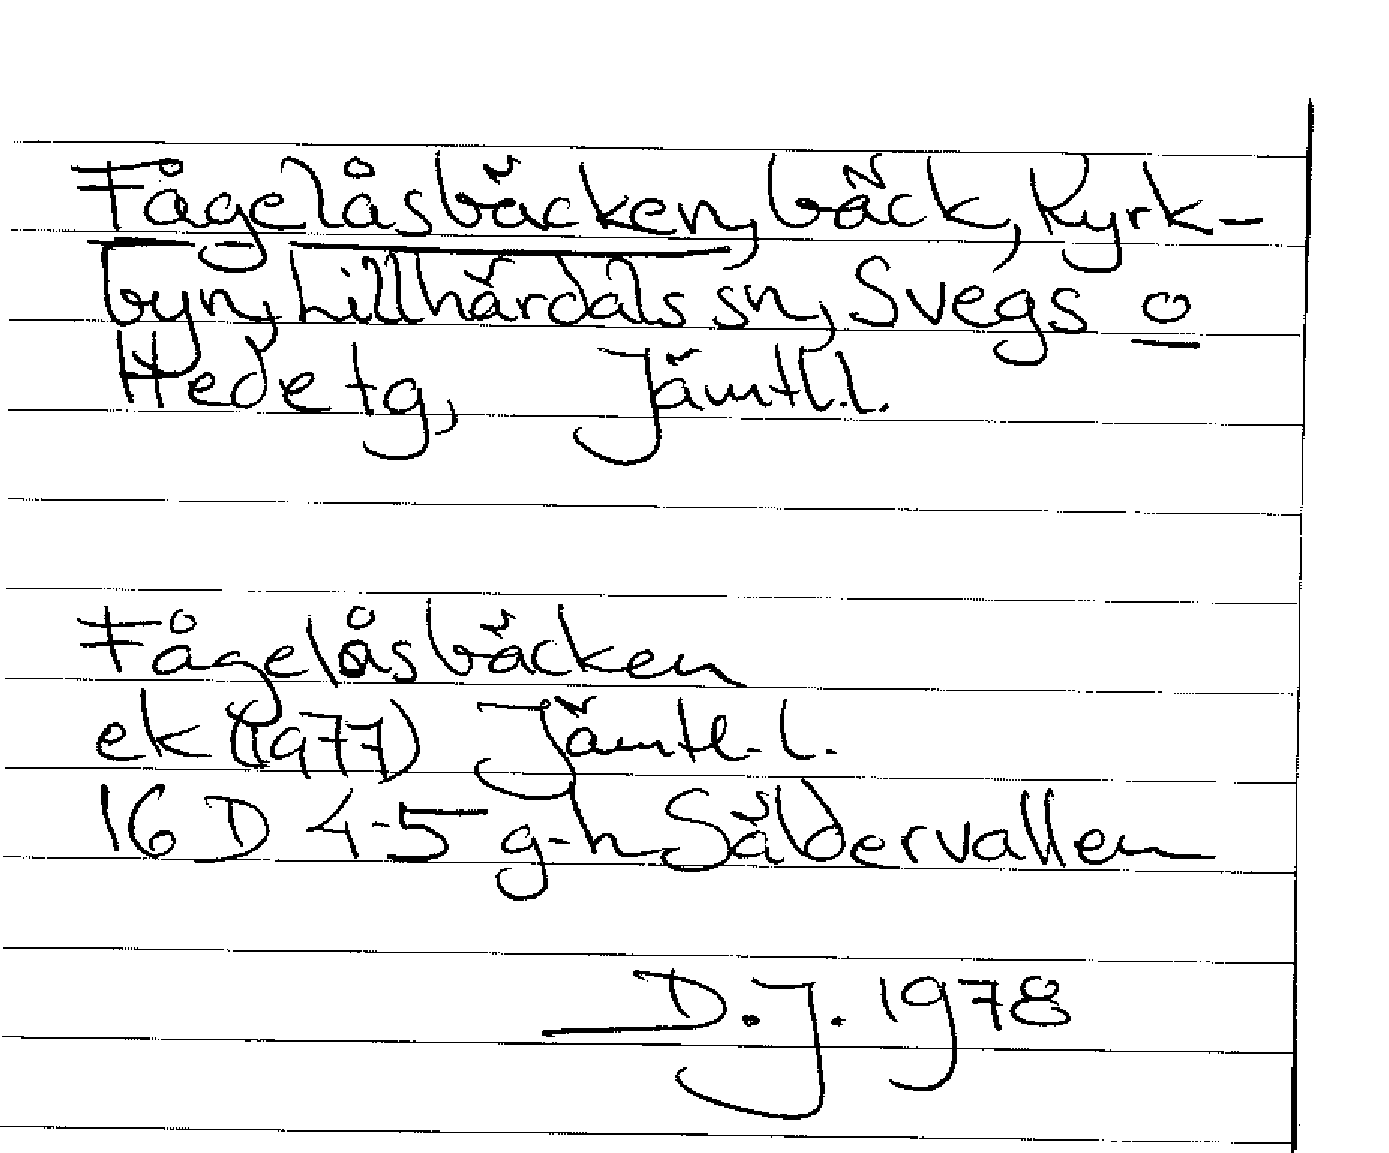 Fågelåsbäcken, bäck, Kyrk-
byn, Lillhärdals sn, Svegs o
Hede tg, Jämtl.l.
Fågelåsbäcken
ek (1977) Jämtl. l.
16 D 4-5 g-h Säldervallen
D.J. 1978